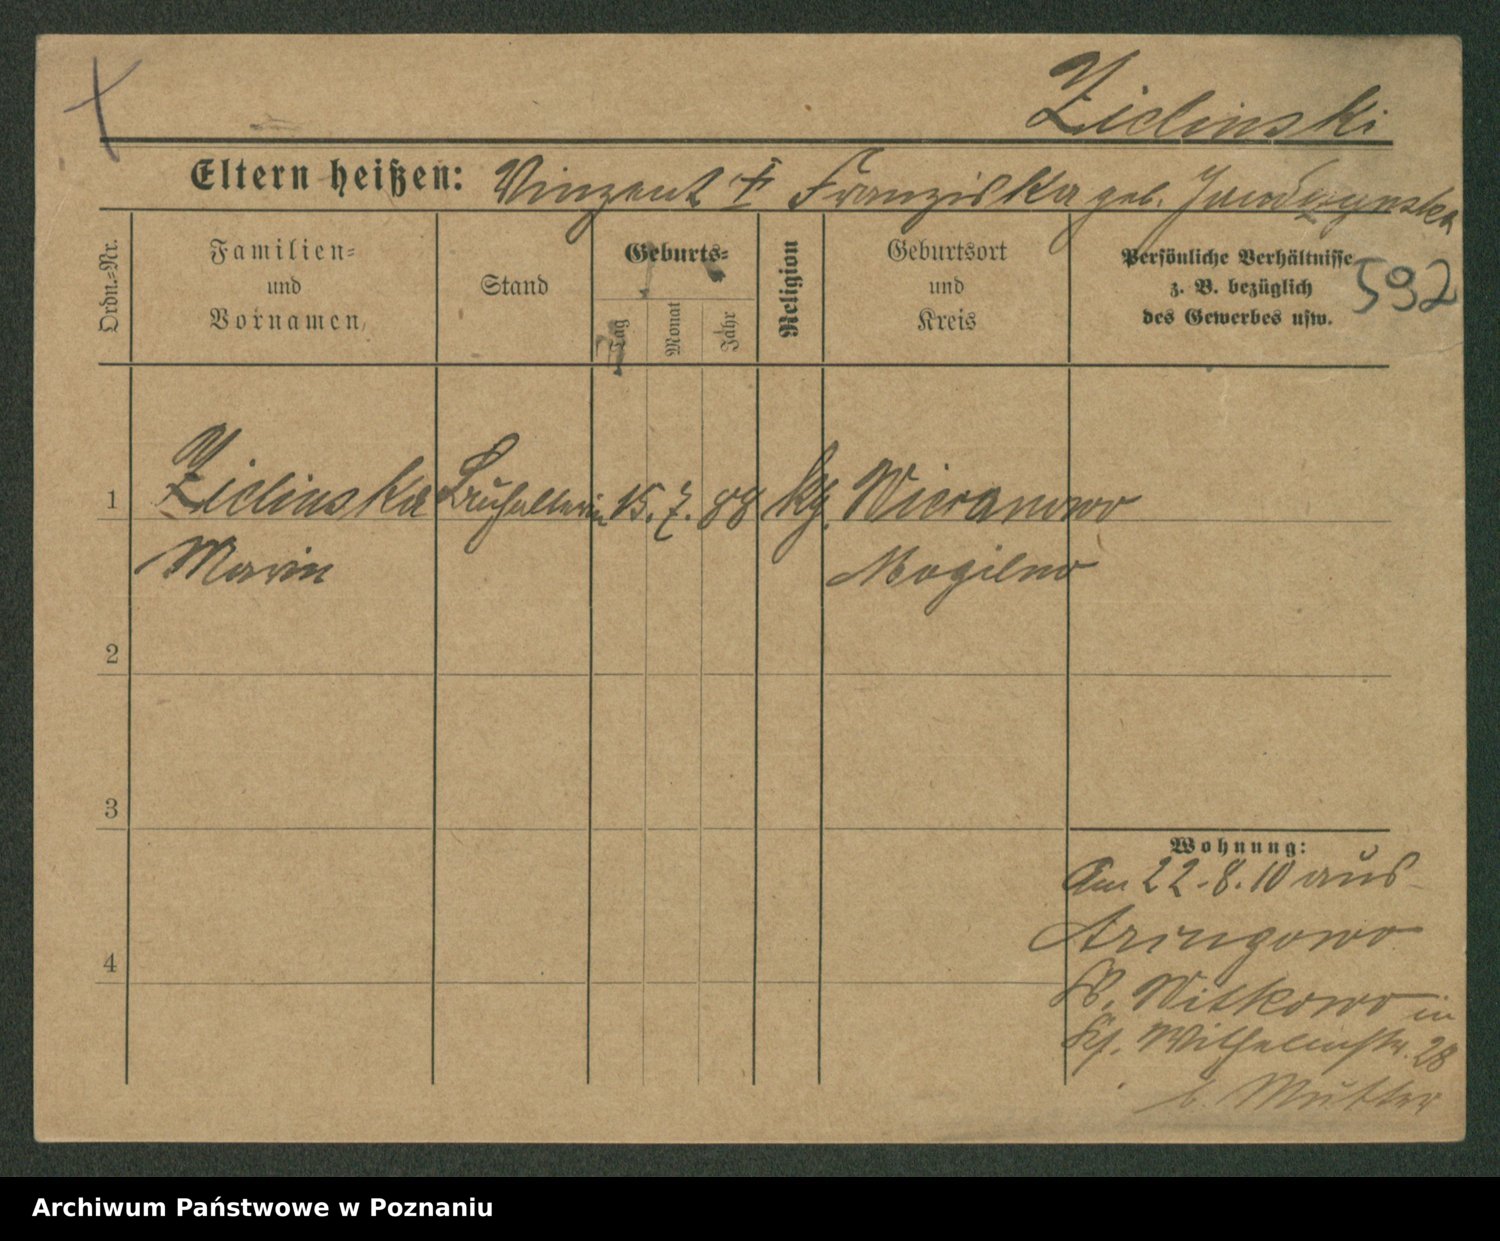 Zielinski
Eltern heißen: Vinzent † Franziska geb.
Ordn.-Nr.
Familien-
und
Vornamen
Stand
Geburts-
Tag
Monat
Jahr
Religion
Geburtsort
und
Kreis
Persönliche Verhältnisse
z. B. bezüglich
des Gewerbes usw.
592
1 Zielinska Buchhalterin 15. 7. 88 kth. Wieranowo
Marie Mogilno
2
3
4
Wohnung:
Am 22.8.10 aus
Kr. Witkowo in
Wilhelmstr. 28
b. Mutter
Archiwum Państwowe w Poznaniu